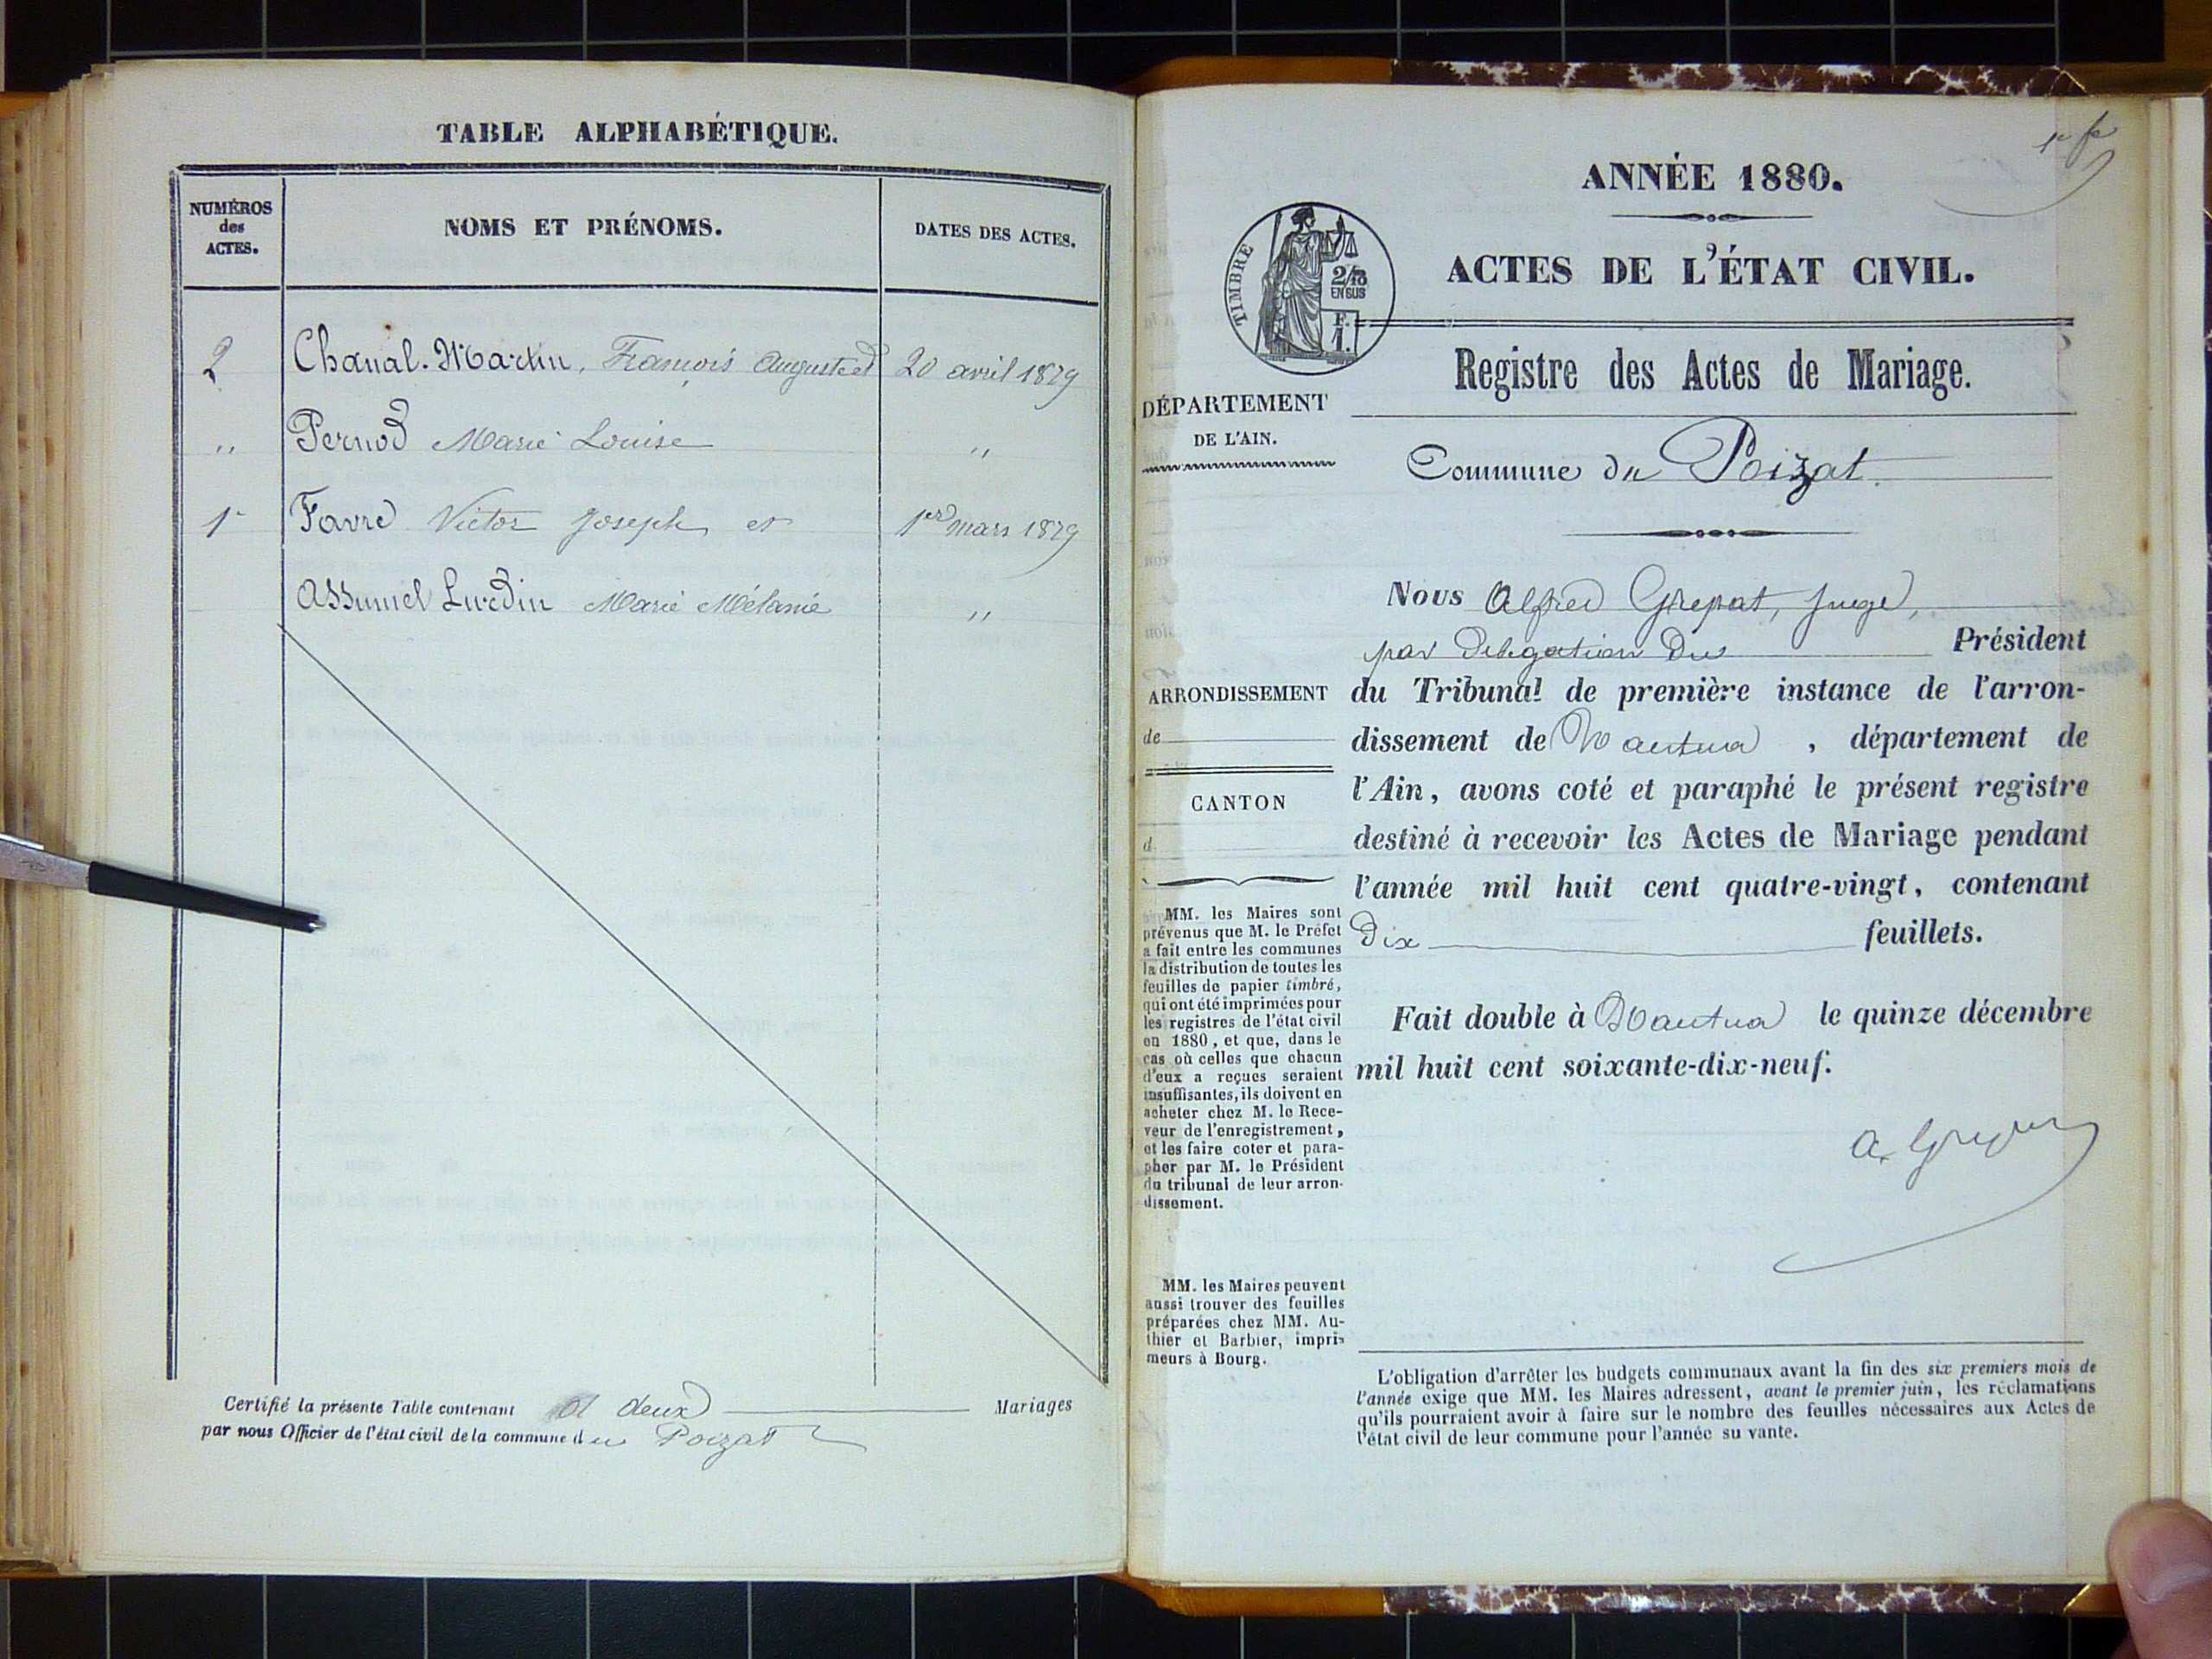 TABLE ALPHABÉTIQUE.
NUMÉROS
des
ACTES.
NOMS ET PRÉNOMS.
DATES DES ACTES.
2 Chanal-Martin, François Auguste et 20 avril 1879
" Pernod Marie Louise "
1 Favre Victor Joseph et 1er mars 1879
Assumel Lurdin Marie Mélanie "
Certifié la présente Table contenant deux Mariages
par nous Officier de l'état civil de la commune du Poizat
ANNÉE 1880.
TIMBRE
2/10
EN SUS
F.
1.
ACTES DE L'ÉTAT CIVIL.
Registre des Actes de Mariage.
DÉPARTEMENT
DE L'AIN.
Commune du Poizat.
Nous Alfred Grepat, juge,
par Délégation du Président
du Tribunal de première instance de l'arron-
dissement de Nantua, département de
l'Ain, avons coté et paraphé le présent registre
destiné à recevoir les Actes de Mariage pendant
l'année mil huit cent quatre-vingt, contenant
Dix feuillets.
Fait double à Nantua le quinze décembre
mil huit cent soixante-dix-neuf.
ARRONDISSEMENT
de
CANTON
d
MM. les Maires sont
prévenus que M. le Préfet
a fait entre les communes
la distribution de toutes les
feuilles de papier timbré,
qui ont été imprimées pour
les registres de l'état civil
en 1880, et que, dans le
cas où celles que chacun
d'eux a reçues seraient
insuffisantes, ils doivent en
acheter chez M. le Rece-
veur de l'enregistrement,
et les faire coter et para-
pher par M. le Président
du tribunal de leur arron-
dissement.
MM. les Maires peuvent
aussi trouver des feuilles
préparées chez MM. Au-
thier et Barbier, impri-
meurs à Bourg.
L'obligation d'arrêter les budgets communaux avant la fin des six premiers mois de
l'année exige que MM. les Maires adressent, avant le premier juin, les réclamations
qu'ils pourraient avoir à faire sur le nombre des feuilles nécessaires aux Actes de
l'état civil de leur commune pour l'année su vante.